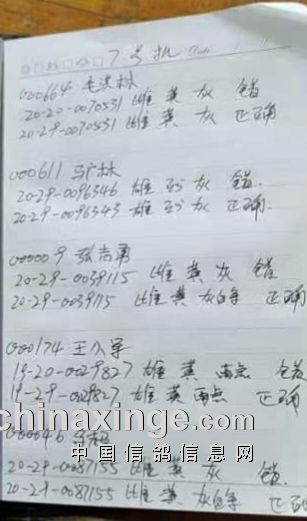 7号机
000664 毛洪林
20-20-0070531 雄 黄 灰 错
20-29-0070531 雄 黄 灰 正确
000611 马广林
20-29-0096546 雄 砂 灰 错.
20-29-0096543 雄 砂 灰 正确.
000009 张志勇
20-29-0039115 雌 黄 灰 错
20-29-0039115 雌 黄 灰白条 正确
000174 王小军
19-20-0029827 雄 黄 雨点 错
19-29-0029827 雄 黄 雨点 正确
chinaxinge.com
000046
中国信鸽信息网
20-29-0087155 雌 黄 灰 错.
20-29-0087155 雌 黄 灰白条 正确